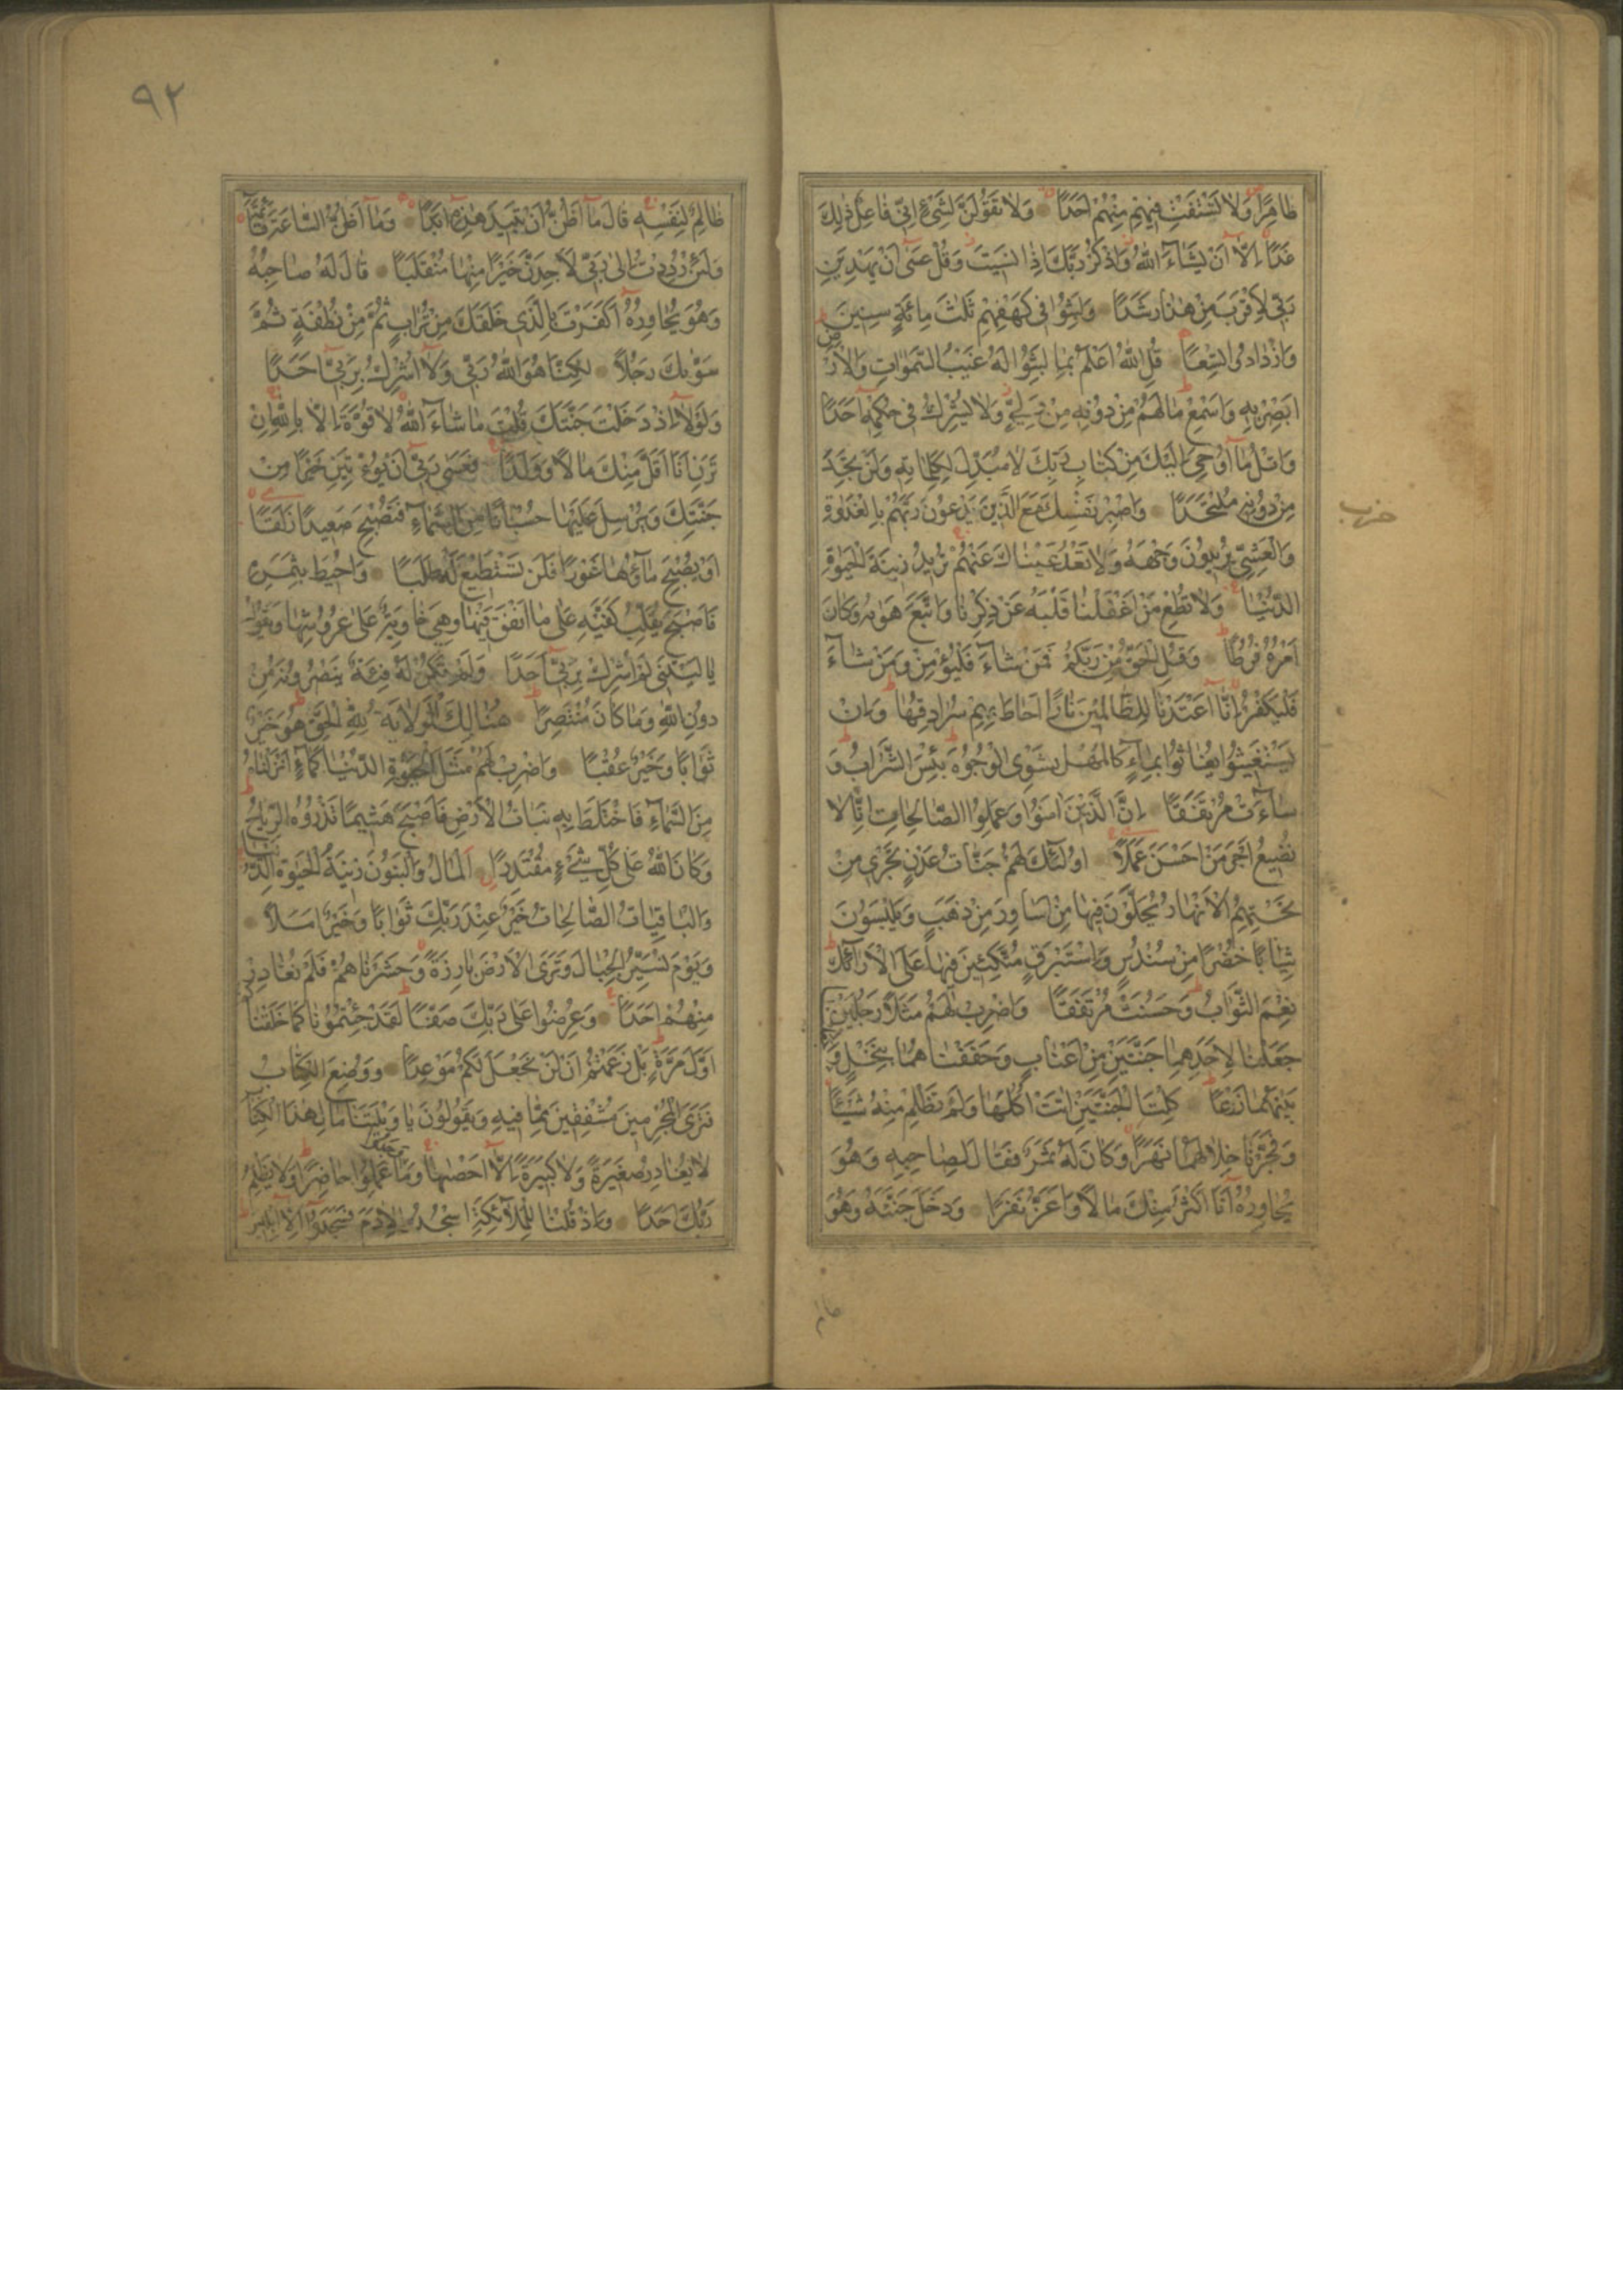 ظَاهِرًا وَلَا تَسْتَفْتِ فِيهِمْ مِنْهُمْ اَحَدًا وَلَا تَقُولَنَّ لِشَيْءٍ اِنِّي فَاعِلٌ ذٰلِكَ
غَدًا اِلَّا اَنْ يَشَاءَ اللهُ وَاذْكُرْ رَبَّكَ اِذَا نَسِيتَ وَقُلْ عَسٰى اَنْ يَهْدِيَنِ
رَبِّي لِاَقْرَبَ مِنْ هٰذَا رَشَدًا وَلَبِثُوا فِي كَهْفِهِمْ ثَلٰثَ مِائَةٍ سِنِينَ
وَازْدَادُوا تِسْعًا قُلِ اللهُ اَعْلَمُ بِمَا لَبِثُوا لَهُ غَيْبُ السَّمٰوَاتِ وَالْاَرْض
اَبْصِرْ بِهِ وَاَسْمِعْ مَا لَهُمْ مِنْ دُونِهِ مِنْ وَلِيٍّ وَلَا يُشْرِكُ فِي حُكْمِهِ اَحَدًا
وَاتْلُ مَا اُوحِيَ اِلَيْكَ مِنْ كِتَابِ رَبِّكَ لَا مُبَدِّلَ لِكَلِمَاتِهِ وَلَنْ تَجِدَ
مِنْ دُونِهِ مُلْتَحَدًا وَاصْبِرْ نَفْسَكَ مَعَ الَّذِينَ يَدْعُونَ رَبَّهُمْ بِالْغَدٰوةِ
حزب
وَالْعَشِيِّ يُرِيدُونَ وَجْهَهُ وَلَا تَعْدُ عَيْنَاكَ عَنْهُمْ تُرِيدُ زِينَةَ الْحَيٰوةِ
الدُّنْيَا وَلَا تُطِعْ مَنْ اَغْفَلْنَا قَلْبَهُ عَنْ ذِكْرِنَا وَاتَّبَعَ هَوٰيهُ وَكَانَ
اَمْرُهُ فُرُطًا وَقُلِ الْحَقُّ مِنْ رَبِّكُمْ فَمَنْ شَاءَ فَلْيُؤْمِنْ وَمَنْ شَاءَ
فَلْيَكْفُرْ اِنَّا اَعْتَدْنَا لِلظَّالِمِينَ نَارًا اَحَاطَ بِهِمْ سُرَادِقُهَا وَاِنْ
يَسْتَغِيثُوا يُغَاثُوا بِمَاءٍ كَالْمُهْلِ يَشْوِي الْوُجُوهَ بِئْسَ الشَّرَابُ وَ
سَاءَتْ مُرْتَفَقًا اِنَّ الَّذِينَ اٰمَنُوا وَعَمِلُوا الصَّالِحَاتِ اِنَّا لَا
نُضِيعُ اَجْرَ مَنْ اَحْسَنَ عَمَلًا اُولٰئِكَ لَهُمْ جَنَّاتُ عَدْنٍ تَجْرِي مِنْ
تَحْتِهِمُ الْاَنْهَارُ يُحَلَّوْنَ فِيهَا مِنْ اَسَاوِرَ مِنْ ذَهَبٍ وَيَلْبَسُونَ
ثِيَابًا خُضْرًا مِنْ سُنْدُسٍ وَاِسْتَبْرَقٍ مُتَّكِئِينَ فِيهَا عَلَى الْاَرَائِكِ
نِعْمَ الثَّوَابُ وَحَسُنَتْ مُرْتَفَقًا وَاضْرِبْ لَهُمْ مَثَلًا رَجُلَيْنِ
جَعَلْنَا لِاَحَدِهِمَا جَنَّتَيْنِ مِنْ اَعْنَابٍ وَحَفَفْنَاهُمَا بِنَخْلٍ وَجَعَلْنَا
بَيْنَهُمَا زَرْعًا كِلْتَا الْجَنَّتَيْنِ اٰتَتْ اُكُلَهَا وَلَمْ تَظْلِمْ مِنْهُ شَيْئًا
وَفَجَّرْنَا خِلَالَهُمَا نَهَرًا وَكَانَ لَهُ ثَمَرٌ فَقَالَ لِصَاحِبِهِ وَهُوَ
يُحَاوِرُهُ اَنَا اَكْثَرُ مِنْكَ مَالًا وَاَعَزُّ نَفَرًا وَدَخَلَ جَنَّتَهُ وَهُوَ
٩٢
ظَالِمٌ لِنَفْسِهِ قَالَ مَا اَظُنُّ اَنْ تَبِيدَ هٰذِهِ اَبَدًا وَمَا اَظُنُّ السَّاعَةَ قَائِمَةً
وَلَئِنْ رُدِدْتُ اِلٰى رَبِّي لَاَجِدَنَّ خَيْرًا مِنْهَا مُنْقَلَبًا قَالَ لَهُ صَاحِبُهُ
وَهُوَ يُحَاوِرُهُ اَكَفَرْتَ بِالَّذِي خَلَقَكَ مِنْ تُرَابٍ ثُمَّ مِنْ نُطْفَةٍ ثُمَّ
سَوّٰيكَ رَجُلًا لٰكِنَّا هُوَ اللهُ رَبِّي وَلَا اُشْرِكُ بِرَبِّي اَحَدًا
وَلَوْلَا اِذْ دَخَلْتَ جَنَّتَكَ قُلْتَ مَا شَاءَ اللهُ لَا قُوَّةَ اِلَّا بِاللهِ اِنْ
تَرَنِ اَنَا اَقَلَّ مِنْكَ مَالًا وَوَلَدًا فَعَسٰى رَبِّي اَنْ يُؤْتِيَنِ خَيْرًا مِنْ
جَنَّتِكَ وَيُرْسِلَ عَلَيْهَا حُسْبَانًا مِنَ السَّمَاءِ فَتُصْبِحَ صَعِيدًا زَلَقًا
اَوْ يُصْبِحَ مَاؤُهَا غَوْرًا فَلَنْ تَسْتَطِيعَ لَهُ طَلَبًا وَاُحِيطَ بِثَمَرِهِ
فَاَصْبَحَ يُقَلِّبُ كَفَّيْهِ عَلٰى مَا اَنْفَقَ فِيهَا وَهِيَ خَاوِيَةٌ عَلٰى عُرُوشِهَا وَيَقُولُ
يَا لَيْتَنِي لَمْ اُشْرِكْ بِرَبِّي اَحَدًا وَلَمْ تَكُنْ لَهُ فِئَةٌ يَنْصُرُونَهُ مِنْ
دُونِ اللهِ وَمَا كَانَ مُنْتَصِرًا هُنَالِكَ الْوَلَايَةُ لِلّٰهِ الْحَقِّ هُوَ خَيْرٌ
ثَوَابًا وَخَيْرٌ عُقْبًا وَاضْرِبْ لَهُمْ مَثَلَ الْحَيٰوةِ الدُّنْيَا كَمَاءٍ اَنْزَلْنَاهُ
مِنَ السَّمَاءِ فَاخْتَلَطَ بِهِ نَبَاتُ الْاَرْضِ فَاَصْبَحَ هَشِيمًا تَذْرُوهُ الرِّيَاحُ
وَكَانَ اللهُ عَلٰى كُلِّ شَيْءٍ مُقْتَدِرًا اَلْمَالُ وَالْبَنُونَ زِينَةُ الْحَيٰوةِ الدُّنْيَا
وَالْبَاقِيَاتُ الصَّالِحَاتُ خَيْرٌ عِنْدَ رَبِّكَ ثَوَابًا وَخَيْرٌ اَمَلًا
وَيَوْمَ نُسَيِّرُ الْجِبَالَ وَتَرَى الْاَرْضَ بَارِزَةً وَحَشَرْنَاهُمْ فَلَمْ نُغَادِرْ
مِنْهُمْ اَحَدًا وَعُرِضُوا عَلٰى رَبِّكَ صَفًّا لَقَدْ جِئْتُمُونَا كَمَا خَلَقْنَاكُمْ
اَوَّلَ مَرَّةٍ بَلْ زَعَمْتُمْ اَنْ لَنْ نَجْعَلَ لَكُمْ مَوْعِدًا وَوُضِعَ الْكِتَابُ
فَتَرَى الْمُجْرِمِينَ مُشْفِقِينَ مِمَّا فِيهِ وَيَقُولُونَ يَا وَيْلَتَنَا مَا لِهٰذَا الْكِتَابِ
لَا يُغَادِرُ صَغِيرَةً وَلَا كَبِيرَةً اِلَّا اَحْصٰيهَا وَوَجَدُوا مَا عَمِلُوا حَاضِرًا وَلَا يَظْلِمُ
رَبُّكَ اَحَدًا وَاِذْ قُلْنَا لِلْمَلَائِكَةِ اسْجُدُوا لِاٰدَمَ فَسَجَدُوا اِلَّا اِبْلِيسَ